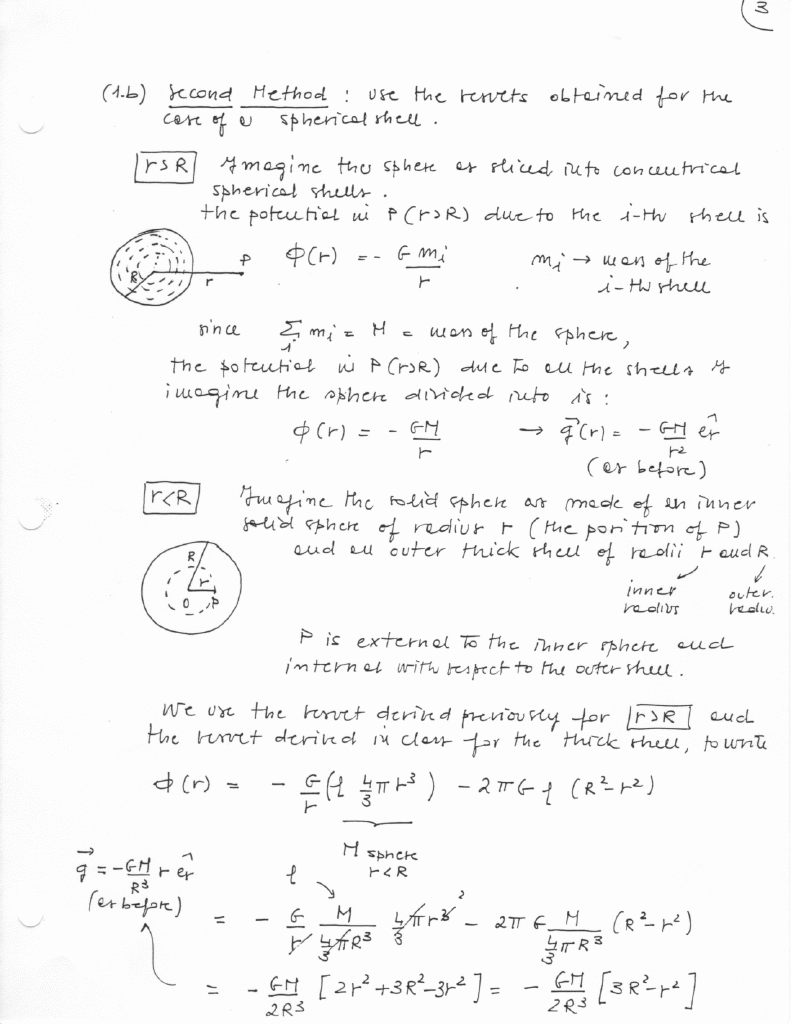 3
(1.b) Second Method : use the results obtained for the
case of a spherical shell .
r>R Imagine the sphere as sliced into concentrical
spherical shells .
the potential in P (r>R) due to the i-th shell is
R r P ϕ(r) = - G mi / r mi → mass of the
i-th shell
since Σi mi = M = mass of the sphere,
the potential in P (r>R) due to all the shells I
imagine the sphere divided into is :
ϕ(r) = - GM / r → g⃗(r) = - GM / r² êr
(as before)
r<R Imagine the solid sphere as made of an inner
solid sphere of radius r (the position of P)
and an outer thick shell of radii r and R
R r O P
inner outer
radius radius.
P is external to the inner sphere and
internal with respect to the outer shell .
We use the result derived previously for r>R and
the result derived in class for the thick shell, to write
ϕ(r) = - G/r (ρ 4/3 π r³) - 2πG ρ (R²-r²)
M sphere
r<R
g⃗ = - GM/R³ r êr
(as before)
ρ
= - G/r M/(4/3 π R³) 4/3 π r³ ² - 2π G M/(4/3 π R³) (R²-r²)
= - GM/2R³ [2r²+3R²-3r²] = - GM/2R³ [3R²-r²]